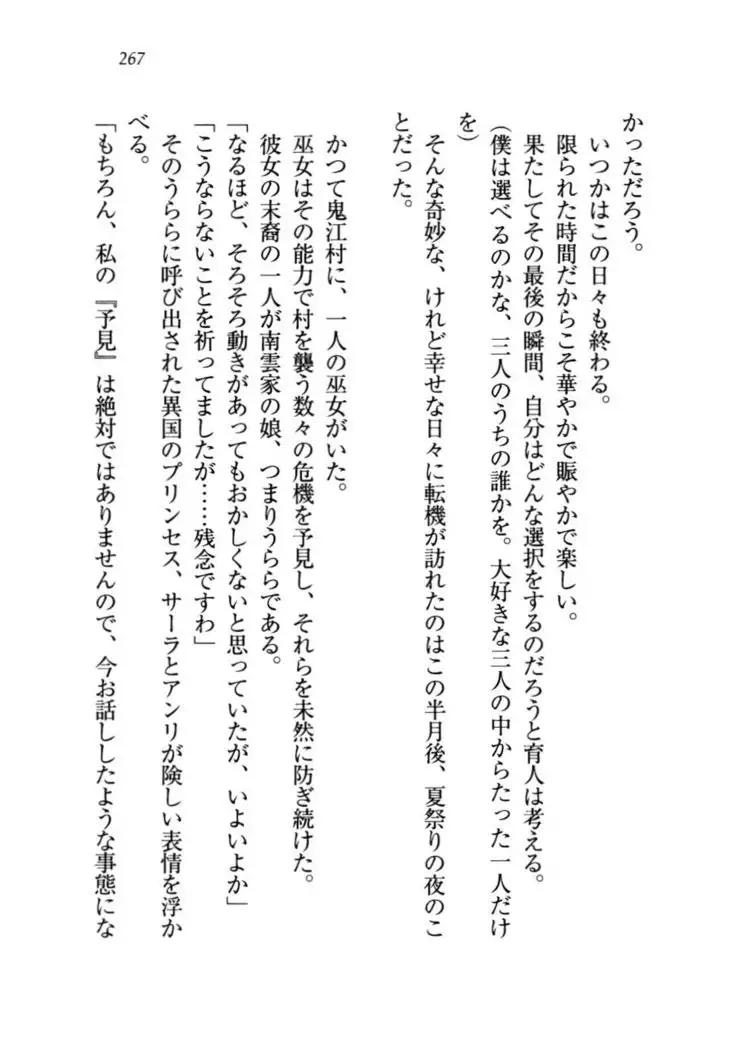 267
かっただろう。
いつかはこの日々も終わる。
限られた時間だからこそ華やかで賑やかで楽しい。
果たしてその最後の瞬間、自分はどんな選択をするのだろうと育人は考える。
(僕は選べるのかな、三人のうちの誰かを。大好きな三人の中からたった一人だけ
を)
そんな奇妙な、けれど幸せな日々に転機が訪れたのはこの半月後、夏祭りの夜のこ
とだった。
かつて鬼江村に、一人の巫女がいた。
巫女はその能力で村を襲う数々の危機を予見し、それらを未然に防ぎ続けた。
彼女の末裔の一人が南雲家の娘、つまりうららである。
「なるほど、そろそろ動きがあってもおかしくないと思っていたが、いよいよか」
「こうならないことを祈ってましたが……残念ですわ」
そのうららに呼び出された異国のプリンセス、サーラとアンリが険しい表情を浮か
べる。
「もちろん、私の『予見』は絶対ではありませんので、今お話ししたような事態にな